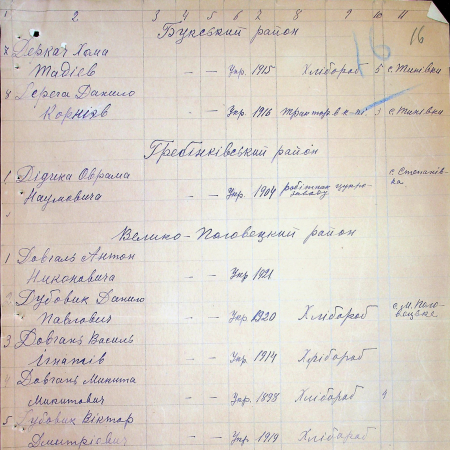 1 2. 3 4 5 6 7 8 9 10 11
Букський район 16 16
7 Деркач Хома
Тадієв - - Укр. 1915 Хлібороб 5 с. Тинівка
8 Дерега Данило
Корніїв - - Укр. 1916 3 с. Тинівка
Гребінківський район
1 Підика Оврама с. Степанів-
Наумовича - - Укр. 1904 робітник цукро- ка
заводу
Велико-Половецкий район
1 Довгаль Антон
Никонович - - Укр 1921
2 Дубовик Данило с. М. Поло-
Павлович - - Укр 1920 Хлібороб вецьке
3 Довгань Василь
Ігнатів - - Укр. 1914 Хлібороб
4 Довгань Микита
Микитович - - Укр. 1898 Хлібороб 4
5 Дубовик Віктор
Дмитрієвич - - Укр. 1919 Хлібороб